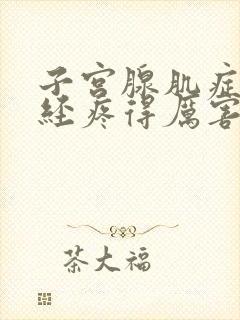 子宫腺肌症
经疼得厉害
茶大福